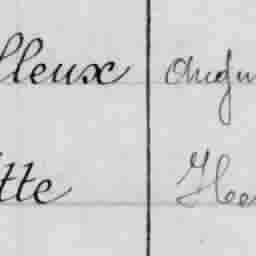 lleux Augu
tte Hen